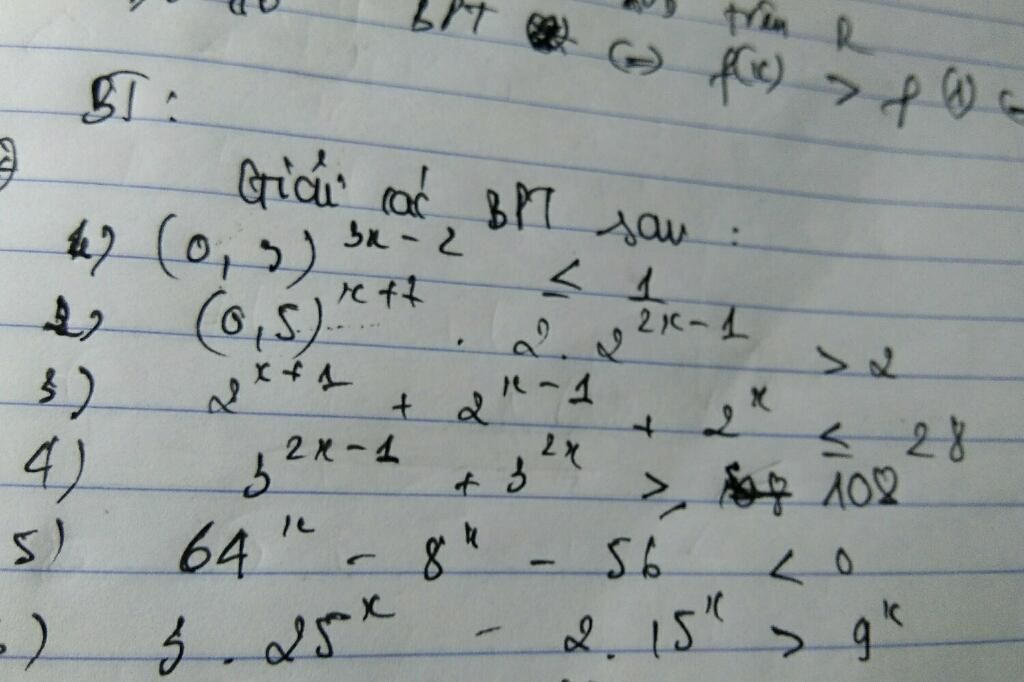 BPT (=) f(x) > f(1)
trên R
BT:
Giải các BPT sau:
1) (0,3)^{3x-2} ≤ 1
2) (0,5)^{x+7} . 2.2^{2x-1} > 2
3) 2^{x+1} + 2^{x-1} + 2^x ≤ 28
4) 3^{2x-1} + 3^{2x} ≥ 108
5) 64^x - 8^x - 56 < 0
) 3.25^x - 2.15^x > 9^x